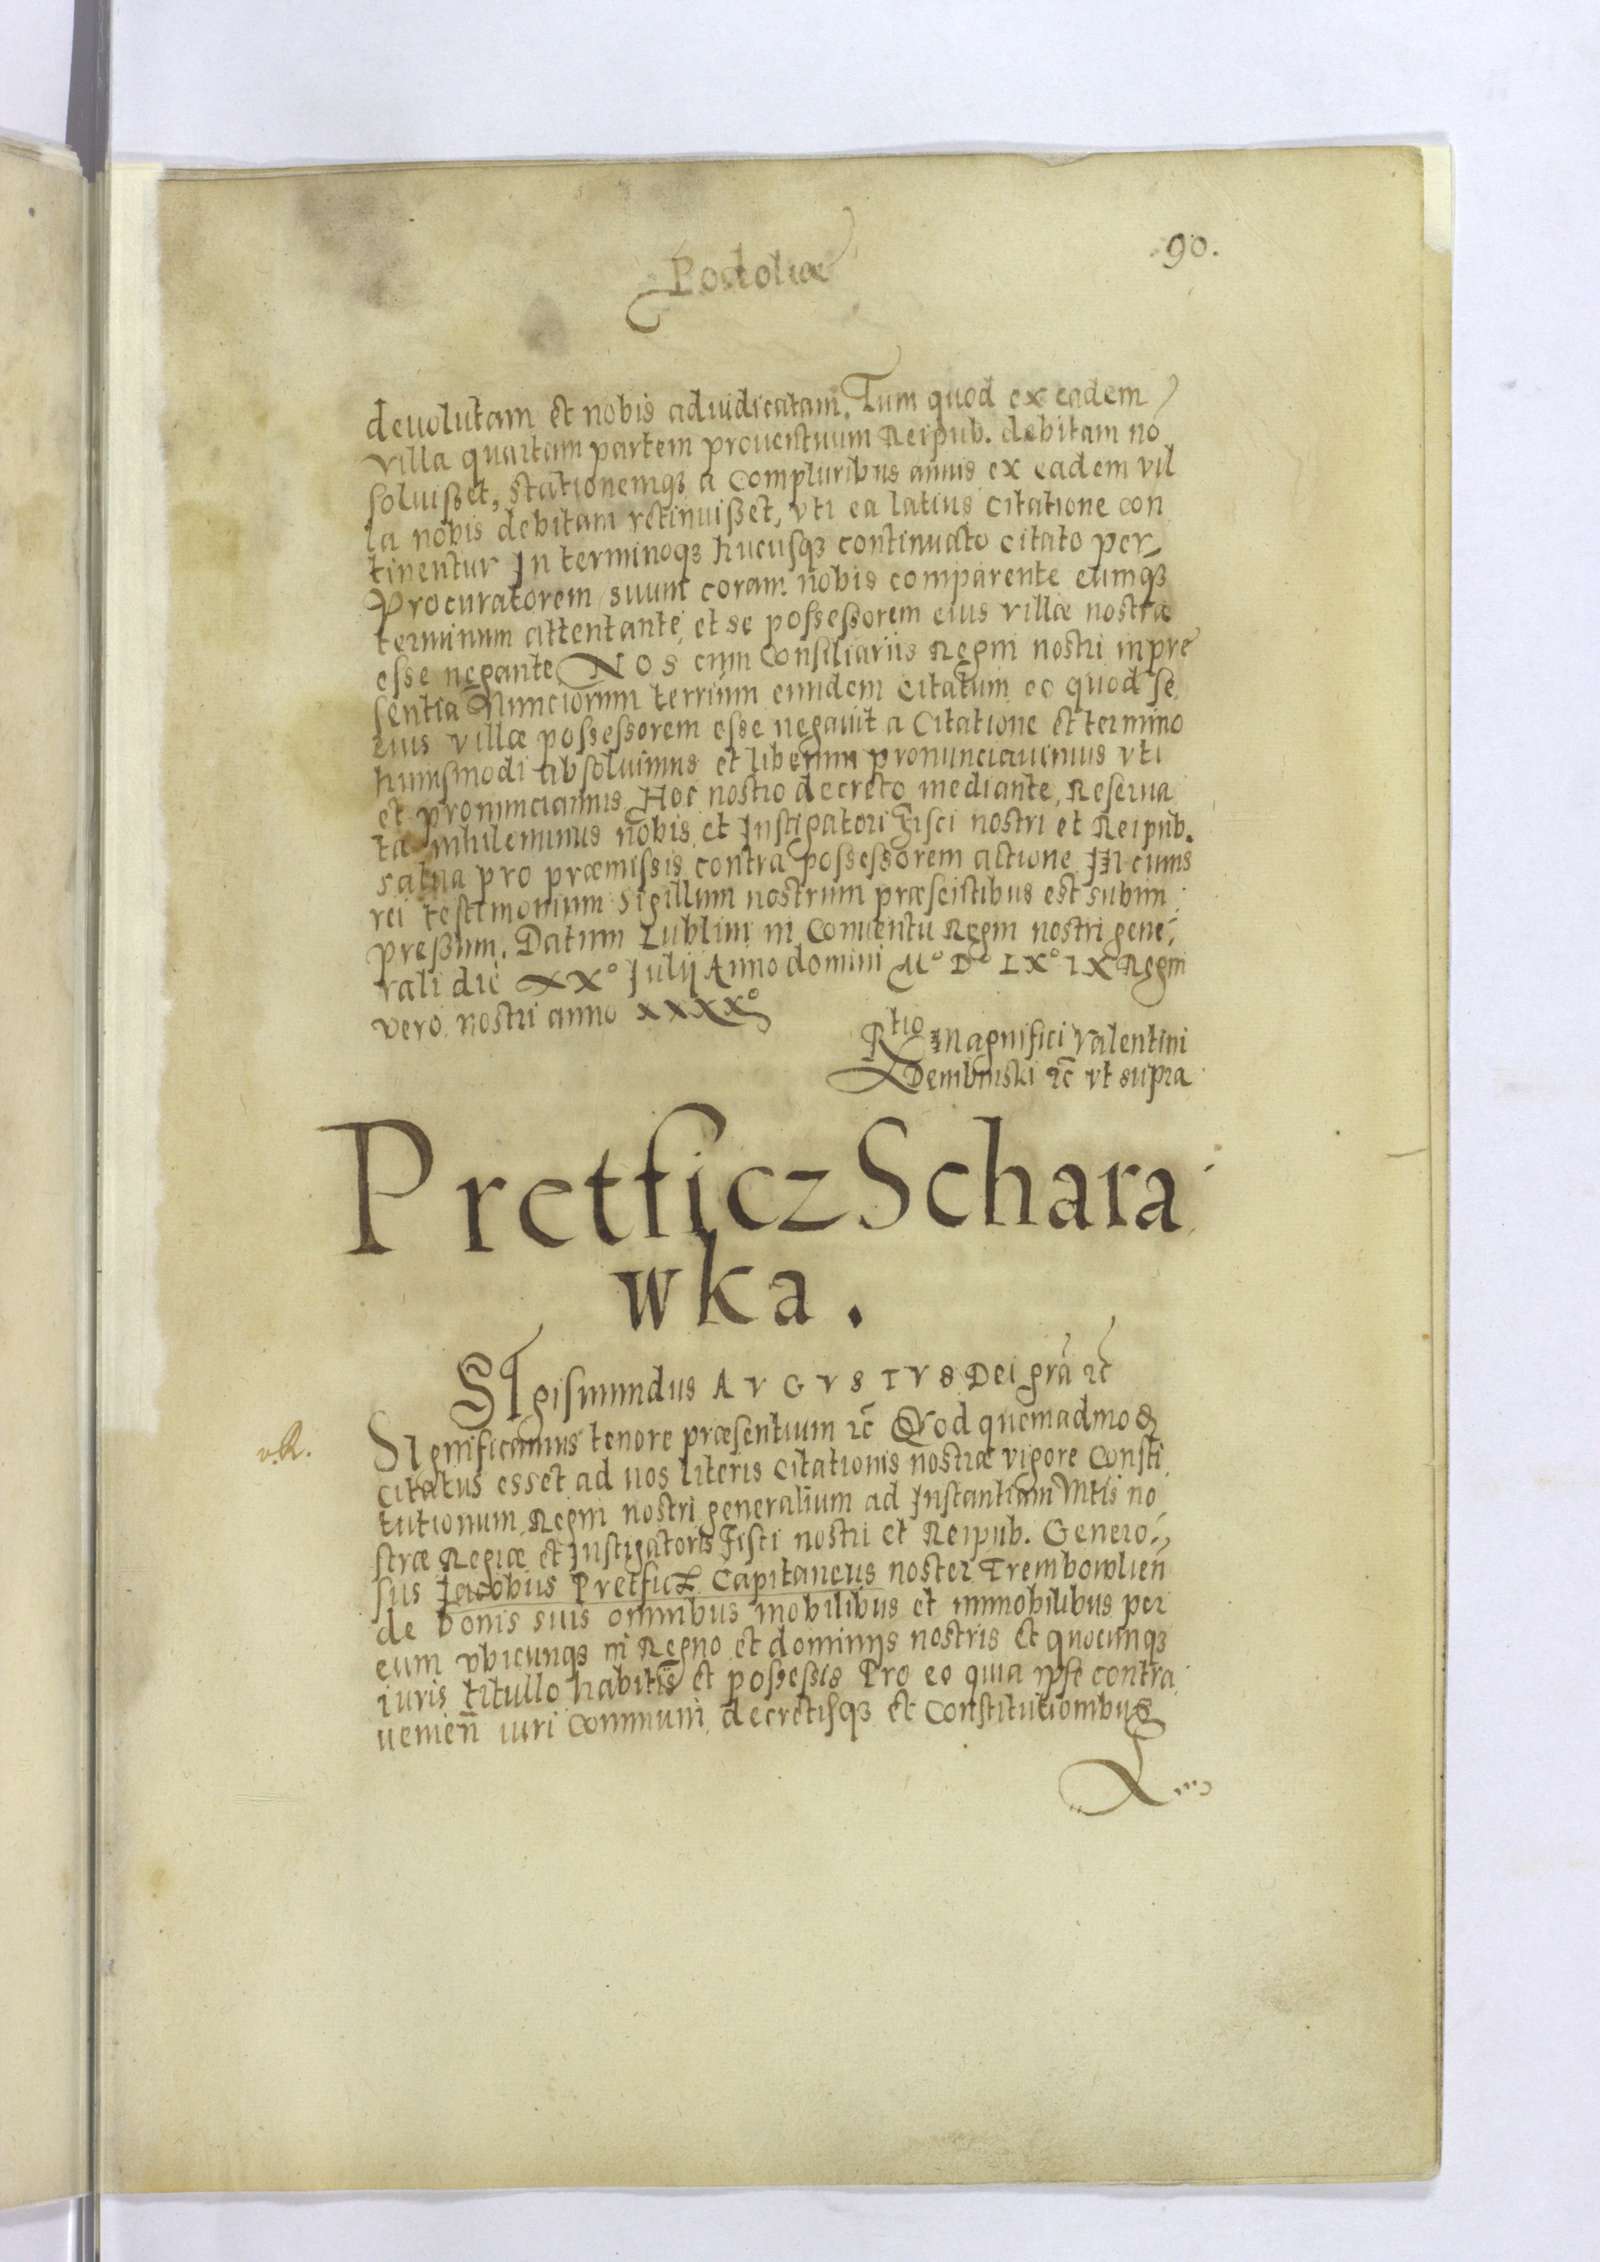 Podoliæ
90.
deuolutam et nobis adiudicatam. Tum quod ex eadem
villa quartam partem prouentuum Reipub. debitam no
soluisset, stationemqз a compluribus annis ex eadem vil
la nobis debitam retinuisset, vti ea latius citatione con
tinentur In terminoqз hucusqз continuato citato per
Procuratorem suum coram nobis comparente eumqз
terminum attentante, et se possessorem eius villæ nostræ
esse negante NOS cum Consiliariis Regni nostri in præ
sentia Nunciorum terrarum eundem Citatum eo quod se
eius villæ possessorem esse negauit a Citatione et termino
huiusmodi absoluimus et liberum pronunciauimus vti
et pronunciamus Hoc nostro decreto mediante, Reserua
ta nihileminus nobis et Instigatori Fisci nostri et Reipub.
salua pro præmissis contra possessorem actione In cuius
rei testimonium Sigillum nostrum præsentibus est subim
pressum. Datum Lublini in Conuentu Regni nostri gene
rali die XX° Julij Anno domini M° D° LX° IX Regni
vero nostri anno XXXX°
Rtio Magnifici Valentini
Dembinski &c̃ vt supra
Pretficz Schara
wka.
SIgismundus AVGVSTVS Dei grã &c̃
SIgnificamus tenore præsentium &c̃ QVod quemadmo
citatus esset ad nos literis citationis nostræ vigore Consti
tutionum Regni nostri generalium ad Instantiam Mtis no
stræ Regiæ et Instigatoris Fisci nostri et Reipub. Genero
sus Jacobus Pretficz Capitaneus noster Trembowlień
de bonis suis omnibus mobilibus et immobilibus per
eum vbicunqз in Regno et dominijs nostris et quocunqз
iuris titullo habitis et possessis Pro eo quia ipse contra
uenień iuri Communi decretisqз et Constitutionibus